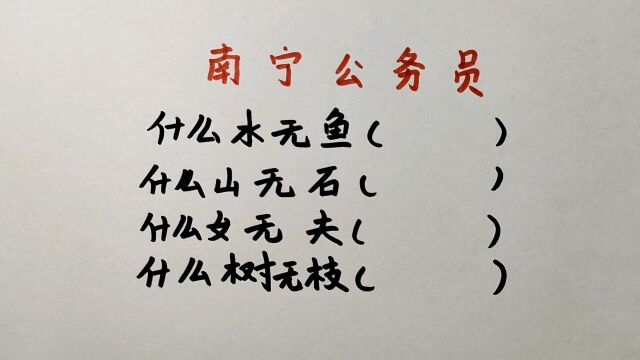 南宁公务员
什么水无鱼( )
什么山无石( )
什么女无夫( )
什么树无枝( )